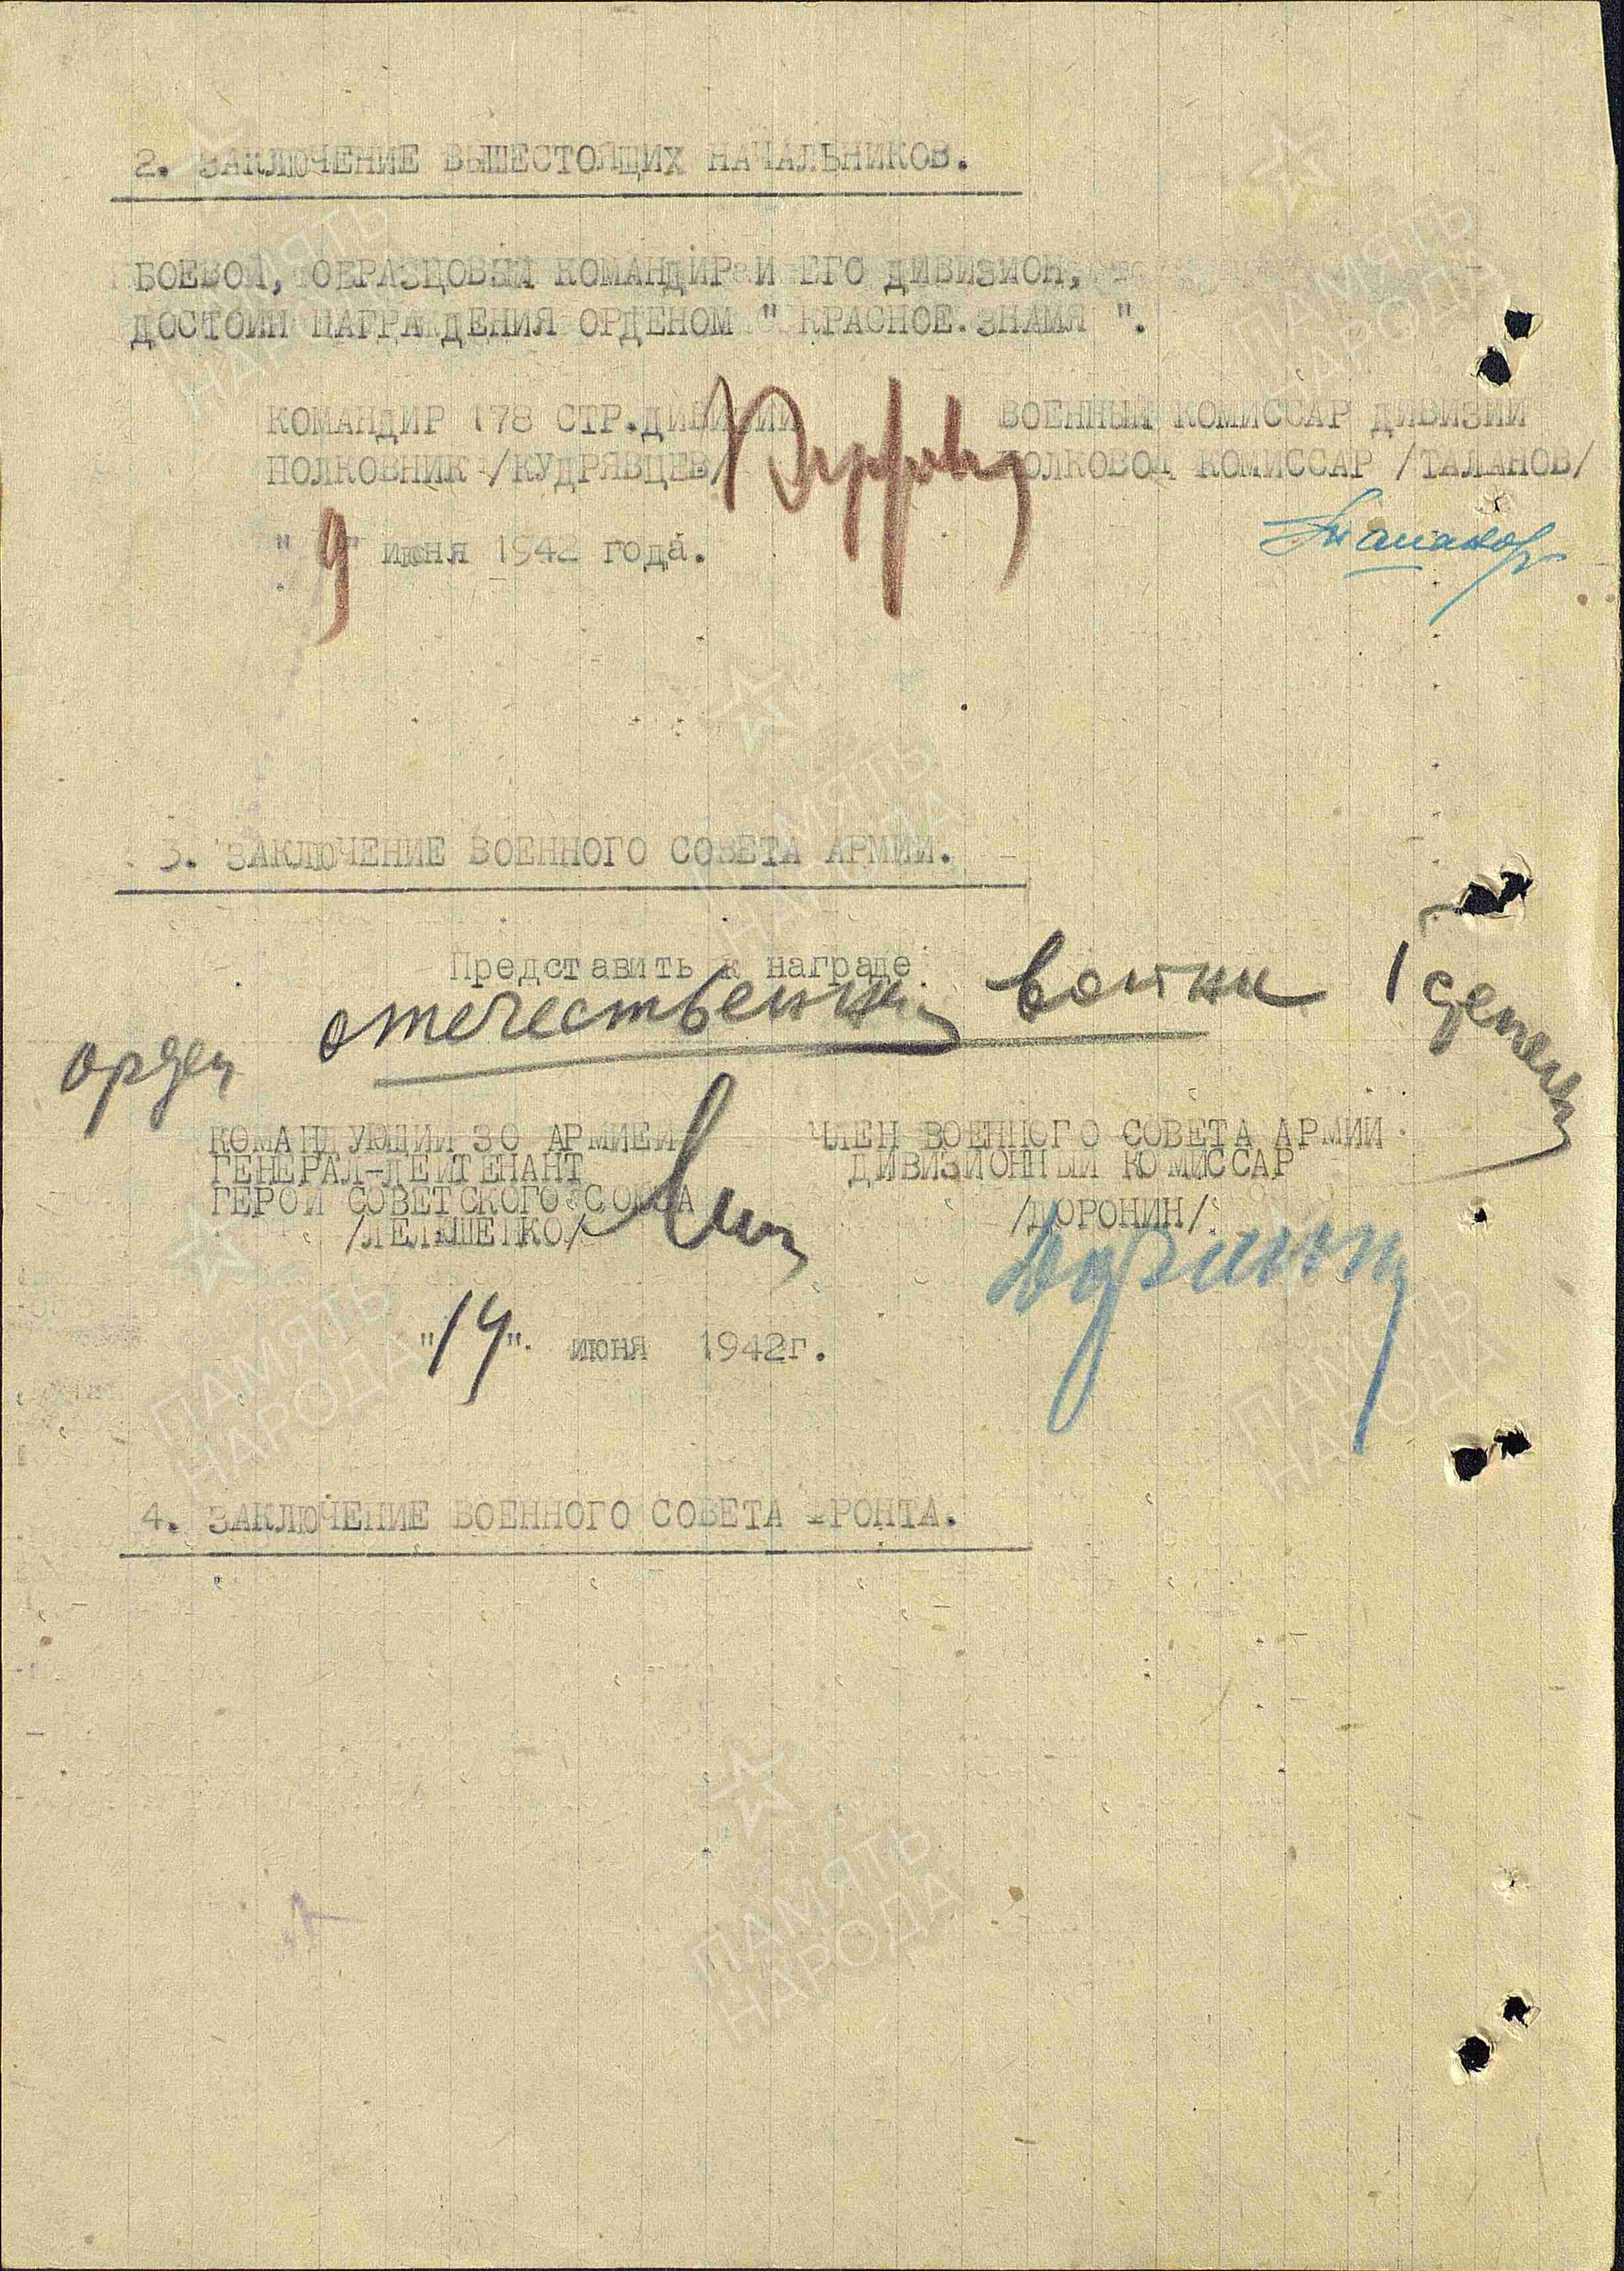 2. ЗАКЛЮЧЕНИЕ ВЫШЕСТОЯЩИХ НАЧАЛЬНИКОВ.
БОЕВОЙ, ОБРАЗЦОВЫЙ КОМАНДИР И ЕГО ДИВИЗИОН,
ДОСТОИН НАГРАЖДЕНИЯ ОРДЕНОМ " КРАСНОЕ ЗНАМЯ ".
КОМАНДИР 178 СТР.ДИВИЗИИ
ПОЛКОВНИК /КУДРЯВЦЕВ/
ВОЕННЫЙ КОМИССАР ДИВИЗИИ
ПОЛКОВОЙ КОМИССАР /ТАЛАНОВ/
" 9 " июня 1942 года.
Таланов
3. ЗАКЛЮЧЕНИЕ ВОЕННОГО СОВЕТА АРМИИ.
Представить к награде
орден отечественной войны 1 степени
КОМАНДУЮЩИЙ 30 АРМИЕЙ
ГЕНЕРАЛ-ЛЕЙТЕНАНТ
ГЕРОЙ СОВЕТСКОГО СОЮЗА
/ЛЕЛЮШЕНКО/
ЧЛЕН ВОЕННОГО СОВЕТА АРМИИ
ДИВИЗИОННЫЙ КОМИССАР
/ДОРОНИН/
Доронин
"14". июня 1942г.
4. ЗАКЛЮЧЕНИЕ ВОЕННОГО СОВЕТА ФРОНТА.
ПАМЯТЬ
НАРОДА
ПАМЯТЬ
НАРОДА
ПАМЯТЬ
НАРОДА
ПАМЯТЬ
НАРОДА
ПАМЯТЬ
НАРОДА
ПАМЯТЬ
НАРОДА